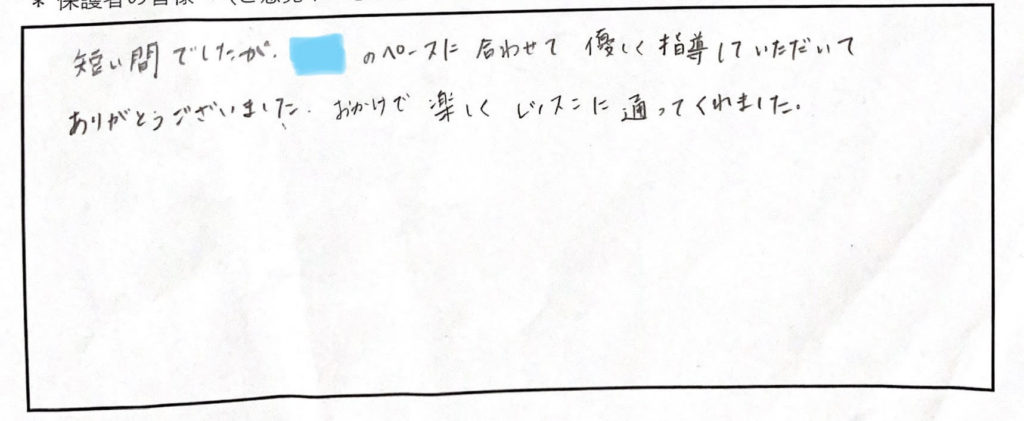 * 保護者の皆様へ
短い間でしたが、 のペースに合わせて 優しく指導していただいて
ありがとうございました。おかけで 楽しく レッスンに 通ってくれました。